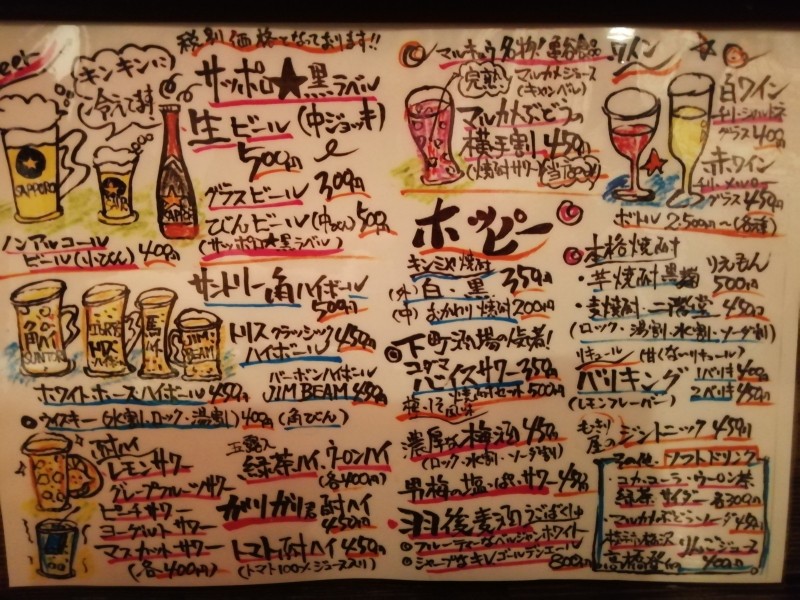 税別価格となっております!!
Beer
キンキンに
冷えてます!
サッポロ★黒ラベル
生ビール(中ジョッキ)
500円
グラスビール 300円
びんビール(中びん)500円
(サッポロ★黒ラベル)
ノンアルコール
ビール(小びん)400円
SAPPORO
サントリー角ハイボール
500円
トリスクラシック 450円
ハイボール
バーボンハイボール
JIM BEAM 450円
角ハイ
SUNTORY
JIM BEAM
ホワイトホースハイボール 450円
ウイスキー(水割、ロック、湯割)400円(角びん)
酎ハイ
レモンサワー
グレープフルーツサワー
ピーチサワー
ヨーグルトサワー
マスカットサワー
(各400円)
玉露入
緑茶ハイ、ウーロンハイ
(各400円)
ガリガリ君酎ハイ
450円
トマト酎ハイ 450円
(トマト100%ジュース入り)
マルキュウ名物!
完熟
マルカメジュース
(キャンベル)
マルカメぶどうの
横手割 450円
(焼酎サワー)
ホッピー
キンミヤ焼酎
(外)白・黒 350円
(中)おかわり焼酎 200円
下町酒場の定番!
コダマ
バイスサワー 350円
梅しそ風味
焼酎セット 500円
濃厚な梅酒 450円
(ロック・水割・ソーダ割)
男梅の塩っぱいサワー 450
羽後麦酒
フルーティーなベルジャンホワイト
シャープなキレ ゴールデンエール
800円
ワイン
白ワイン
チリ・シャルドネ
グラス 400円
赤ワイン
グラス 450円
ボトル 2,500〜(各種)
本格焼酎
・芋焼酎 黒麹 りえもん
500円
・麦焼酎・二階堂 450円
(ロック・湯割・水割・ソーダ割)
リキュール(甘くないリキュール)
バリキング 1ベリキ 400円
(レモンフレーバー) 2ベリキ 450円
もっきり
屋のジントニック 450円
その他・ソフトドリンク
・コカ・コーラ・ウーロン茶
緑茶 サイダー 各300円
・マルカメぶどうソーダ 450円
りんごジュース
400円